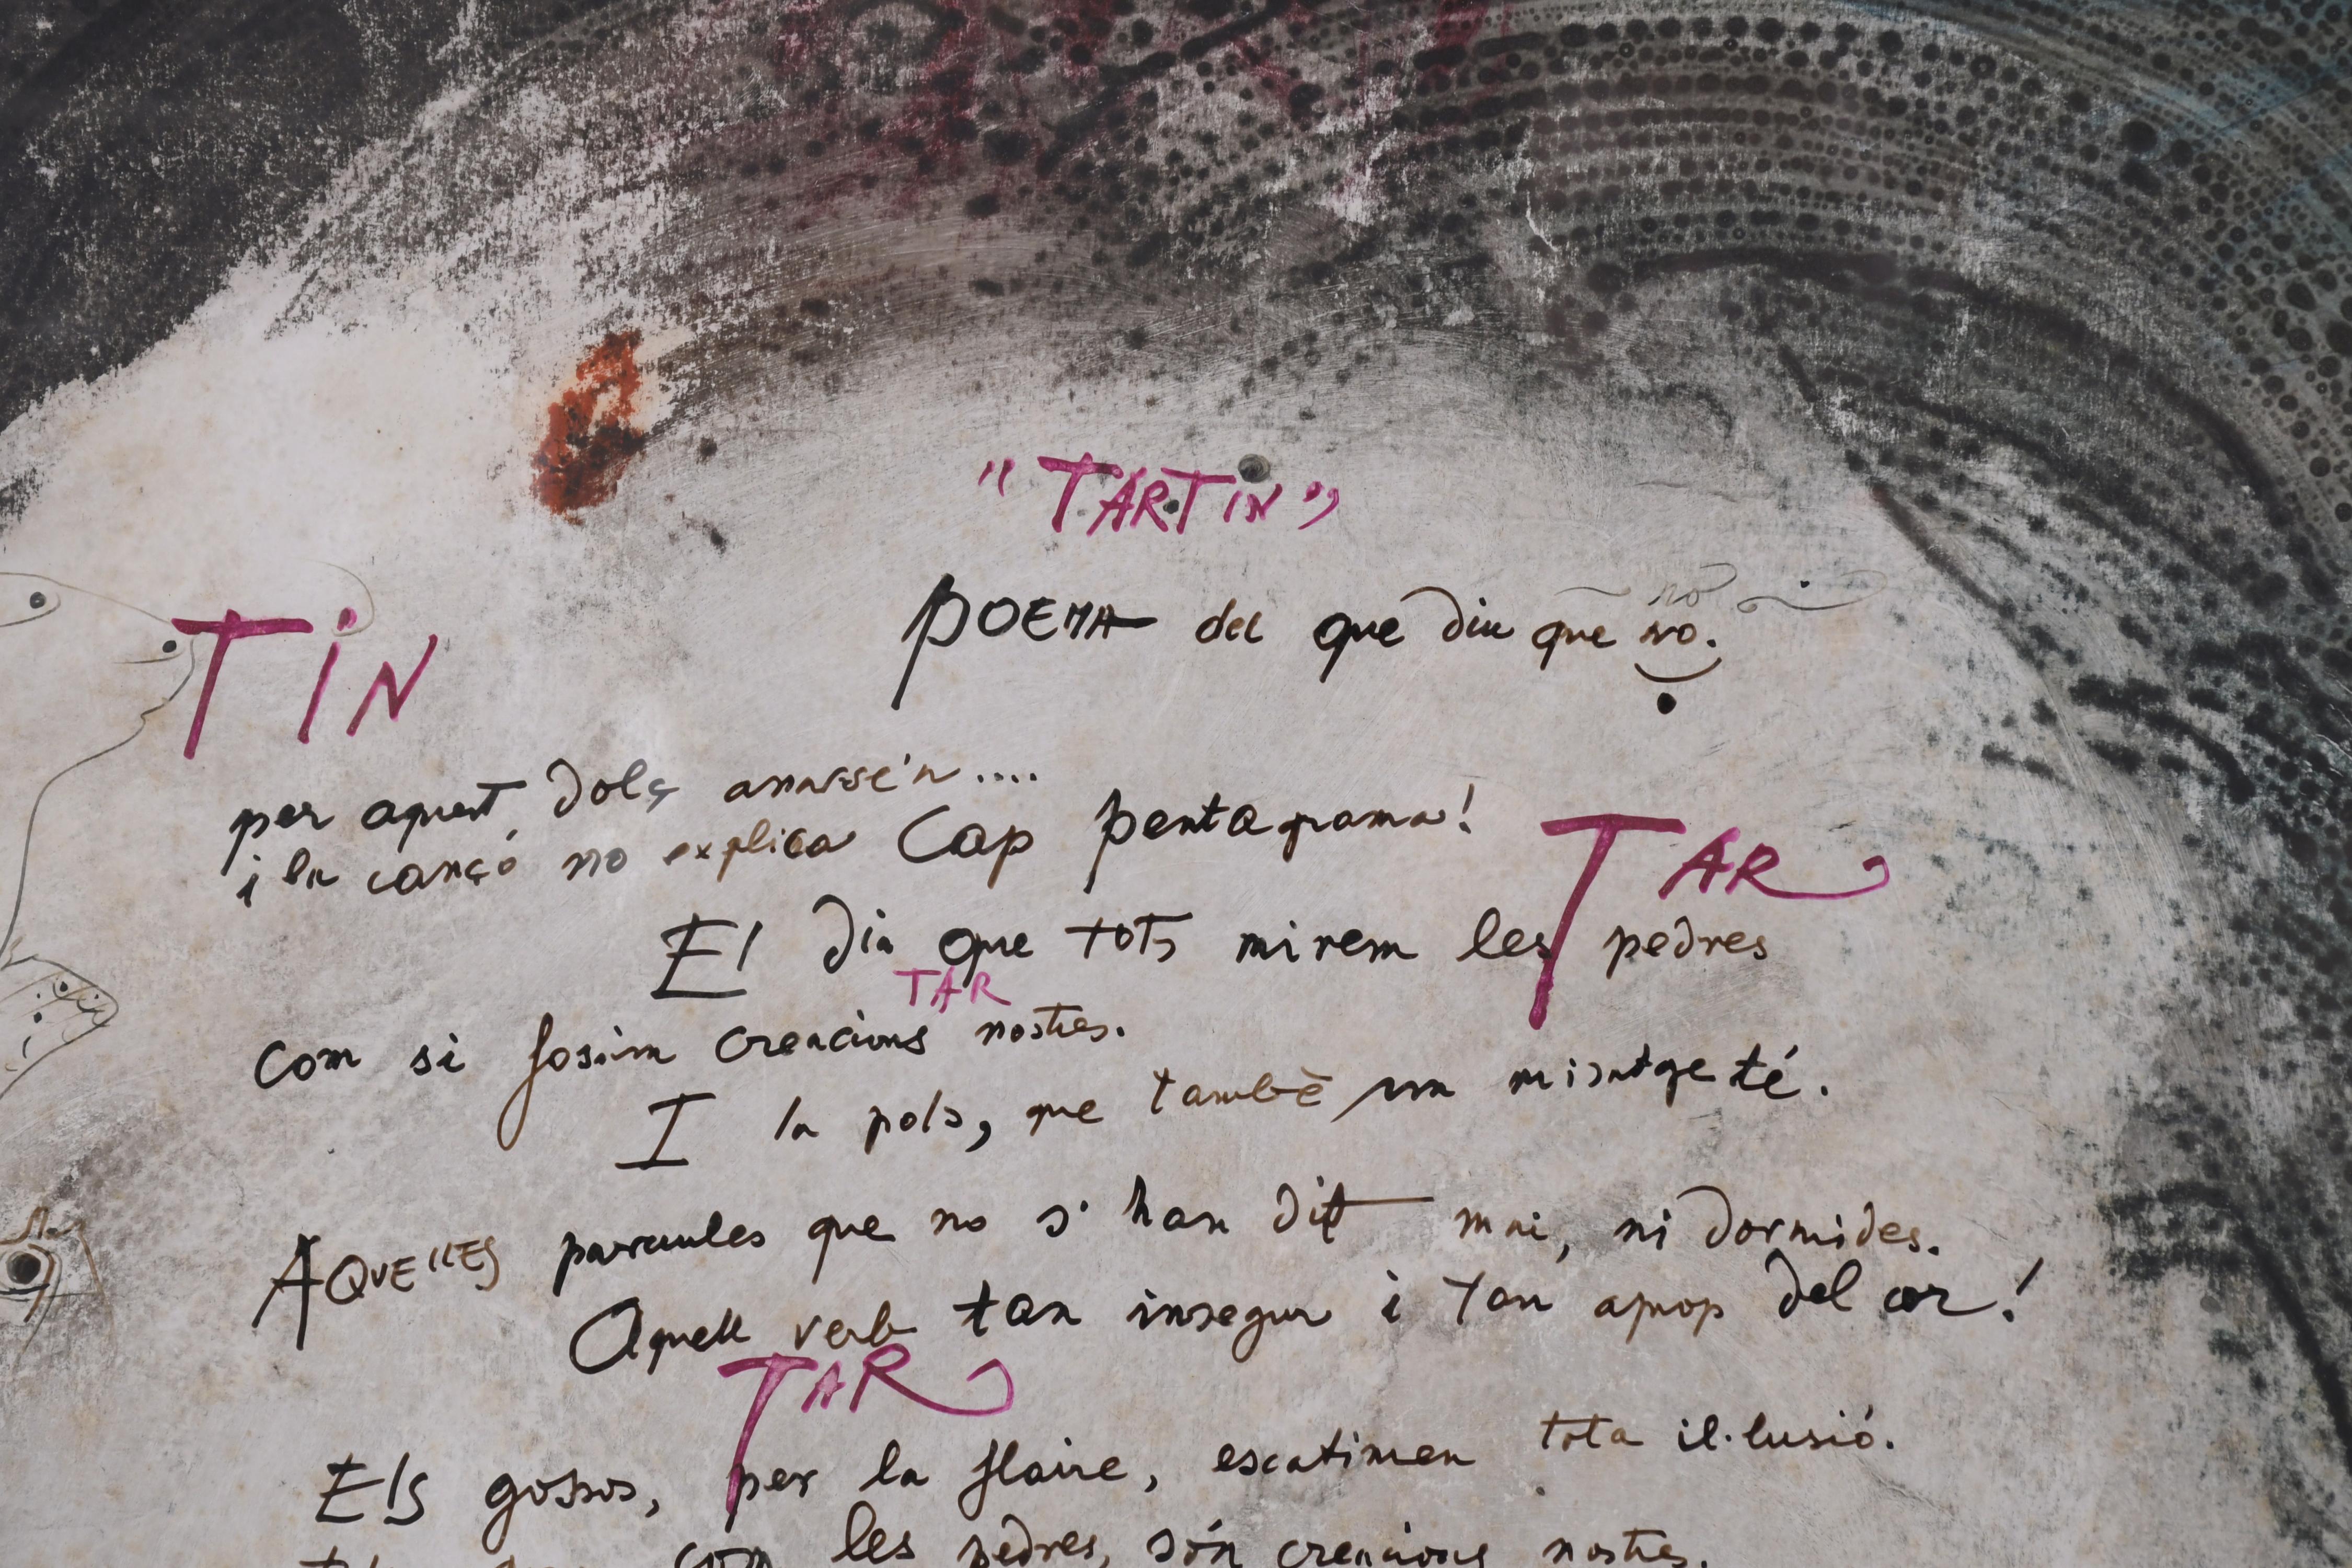 "TARTiN"
POEMA del que diu que no.
no
TiN
per aquest dolç assassí....
i la cançó no explica Cap pentagrama!
TAR
El dia que tots mirem les pedres
TAR
com si fosim creacions nostres.
I la pols, que també un misatge té.
AQUELLES paraules que no s'han dit mai, ni dormides.
Aquell verb tan insegur i tan aprop del cor!
TAR
Els gossos, per la flaire, escatimen tota il·lusió.
com les pedres, són creacions nostres.